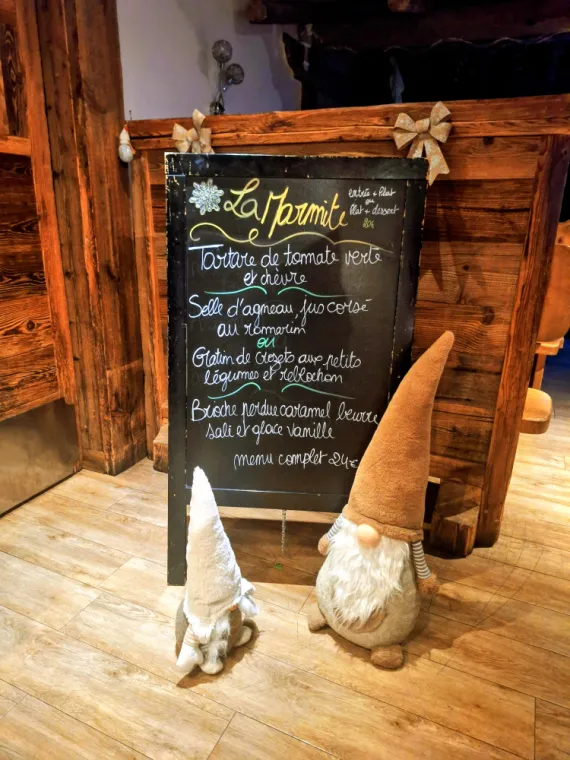 La Marmite
entrée + Plat
ou
Plat + dessert
Tartare de tomate verte
et chèvre
Selle d'agneau, jus corsé
au romarin
ou
Gratin de Crozets aux petits
légumes et reblochon
Brioche perdue caramel beurre
salé et glace vanille
menu complet 24€